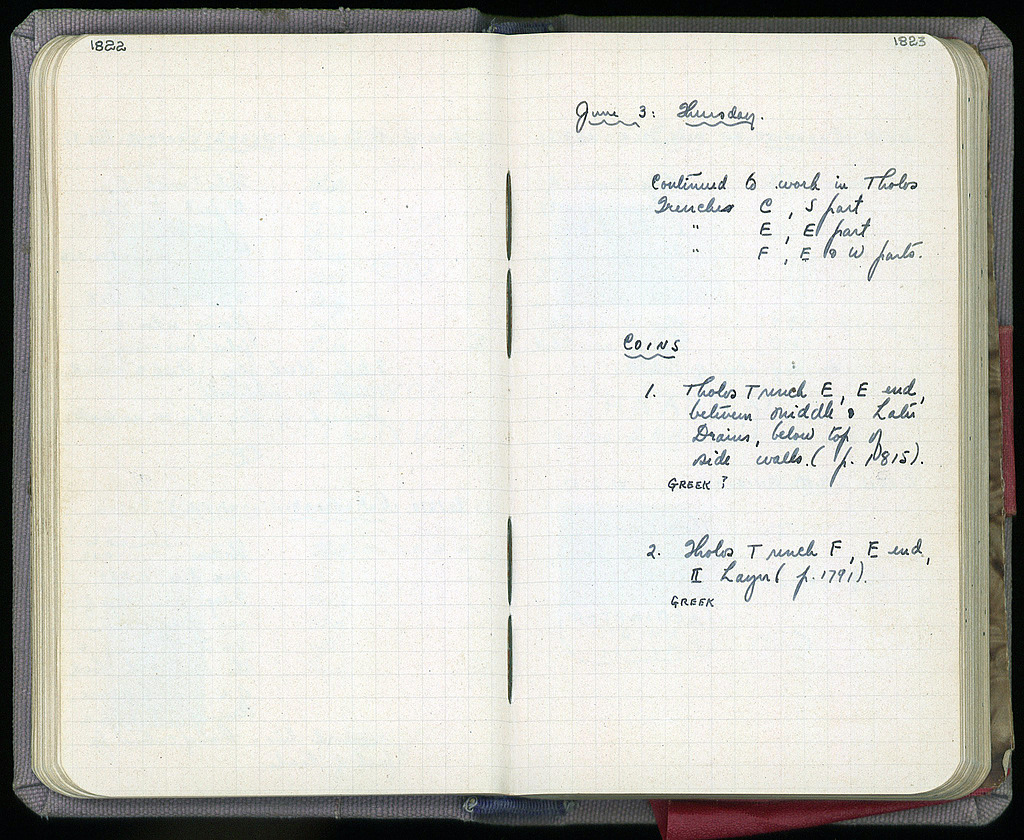 1822
1823
June 3: Thursday.
Continued to work in Tholos
Trenches C, S part
" E, E part
" F, E & W parts.
COINS
1. Tholos Trench E, E end,
between middle & Later
Drains, below top of
side walls. (p. 1815).
GREEK ?
2. Tholos Trench F, E end,
II Layer (p. 1791).
GREEK